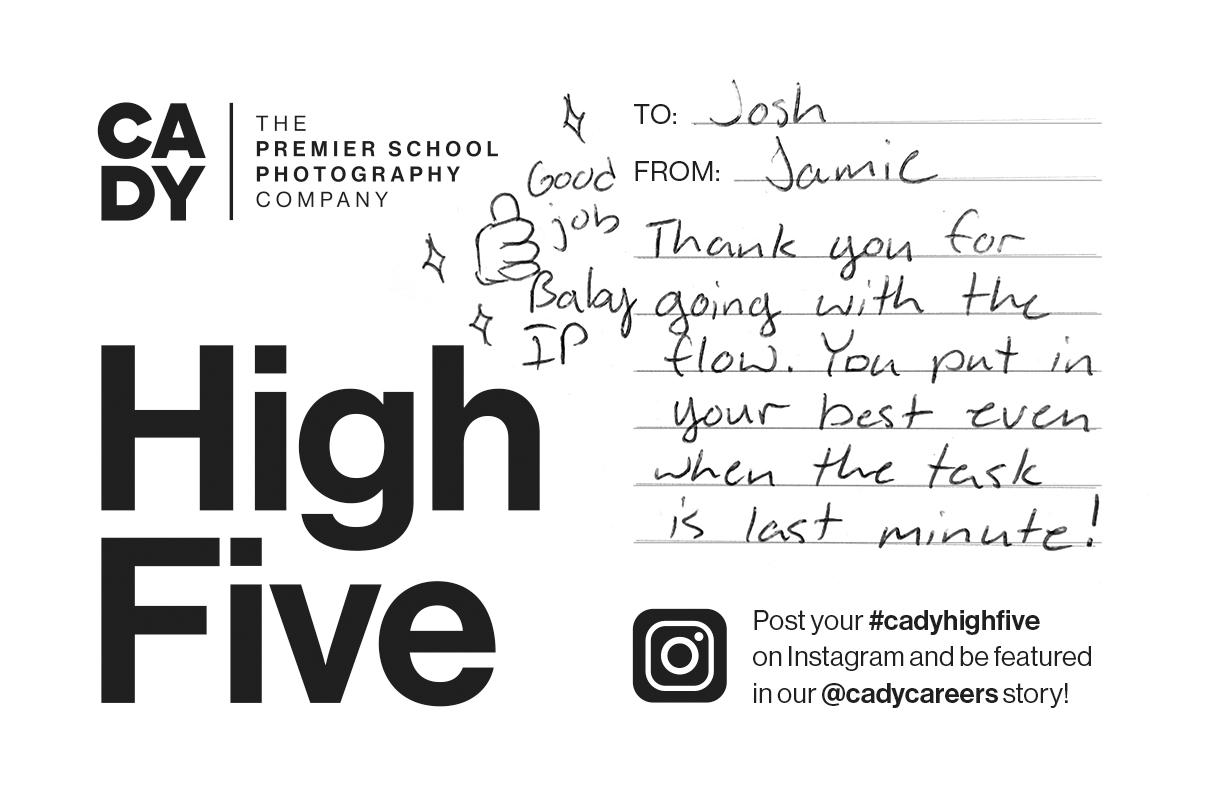 CA
DY
THE
PREMIER SCHOOL
PHOTOGRAPHY
COMPANY
High
Five
Good
job
Baby
IP
TO: Josh
FROM: Jamie
Thank you for
going with the
flow. You put in
your best even
when the task
is last minute!
Post your #cadyhighfive
on Instagram and be featured
in our @cadycareers story!